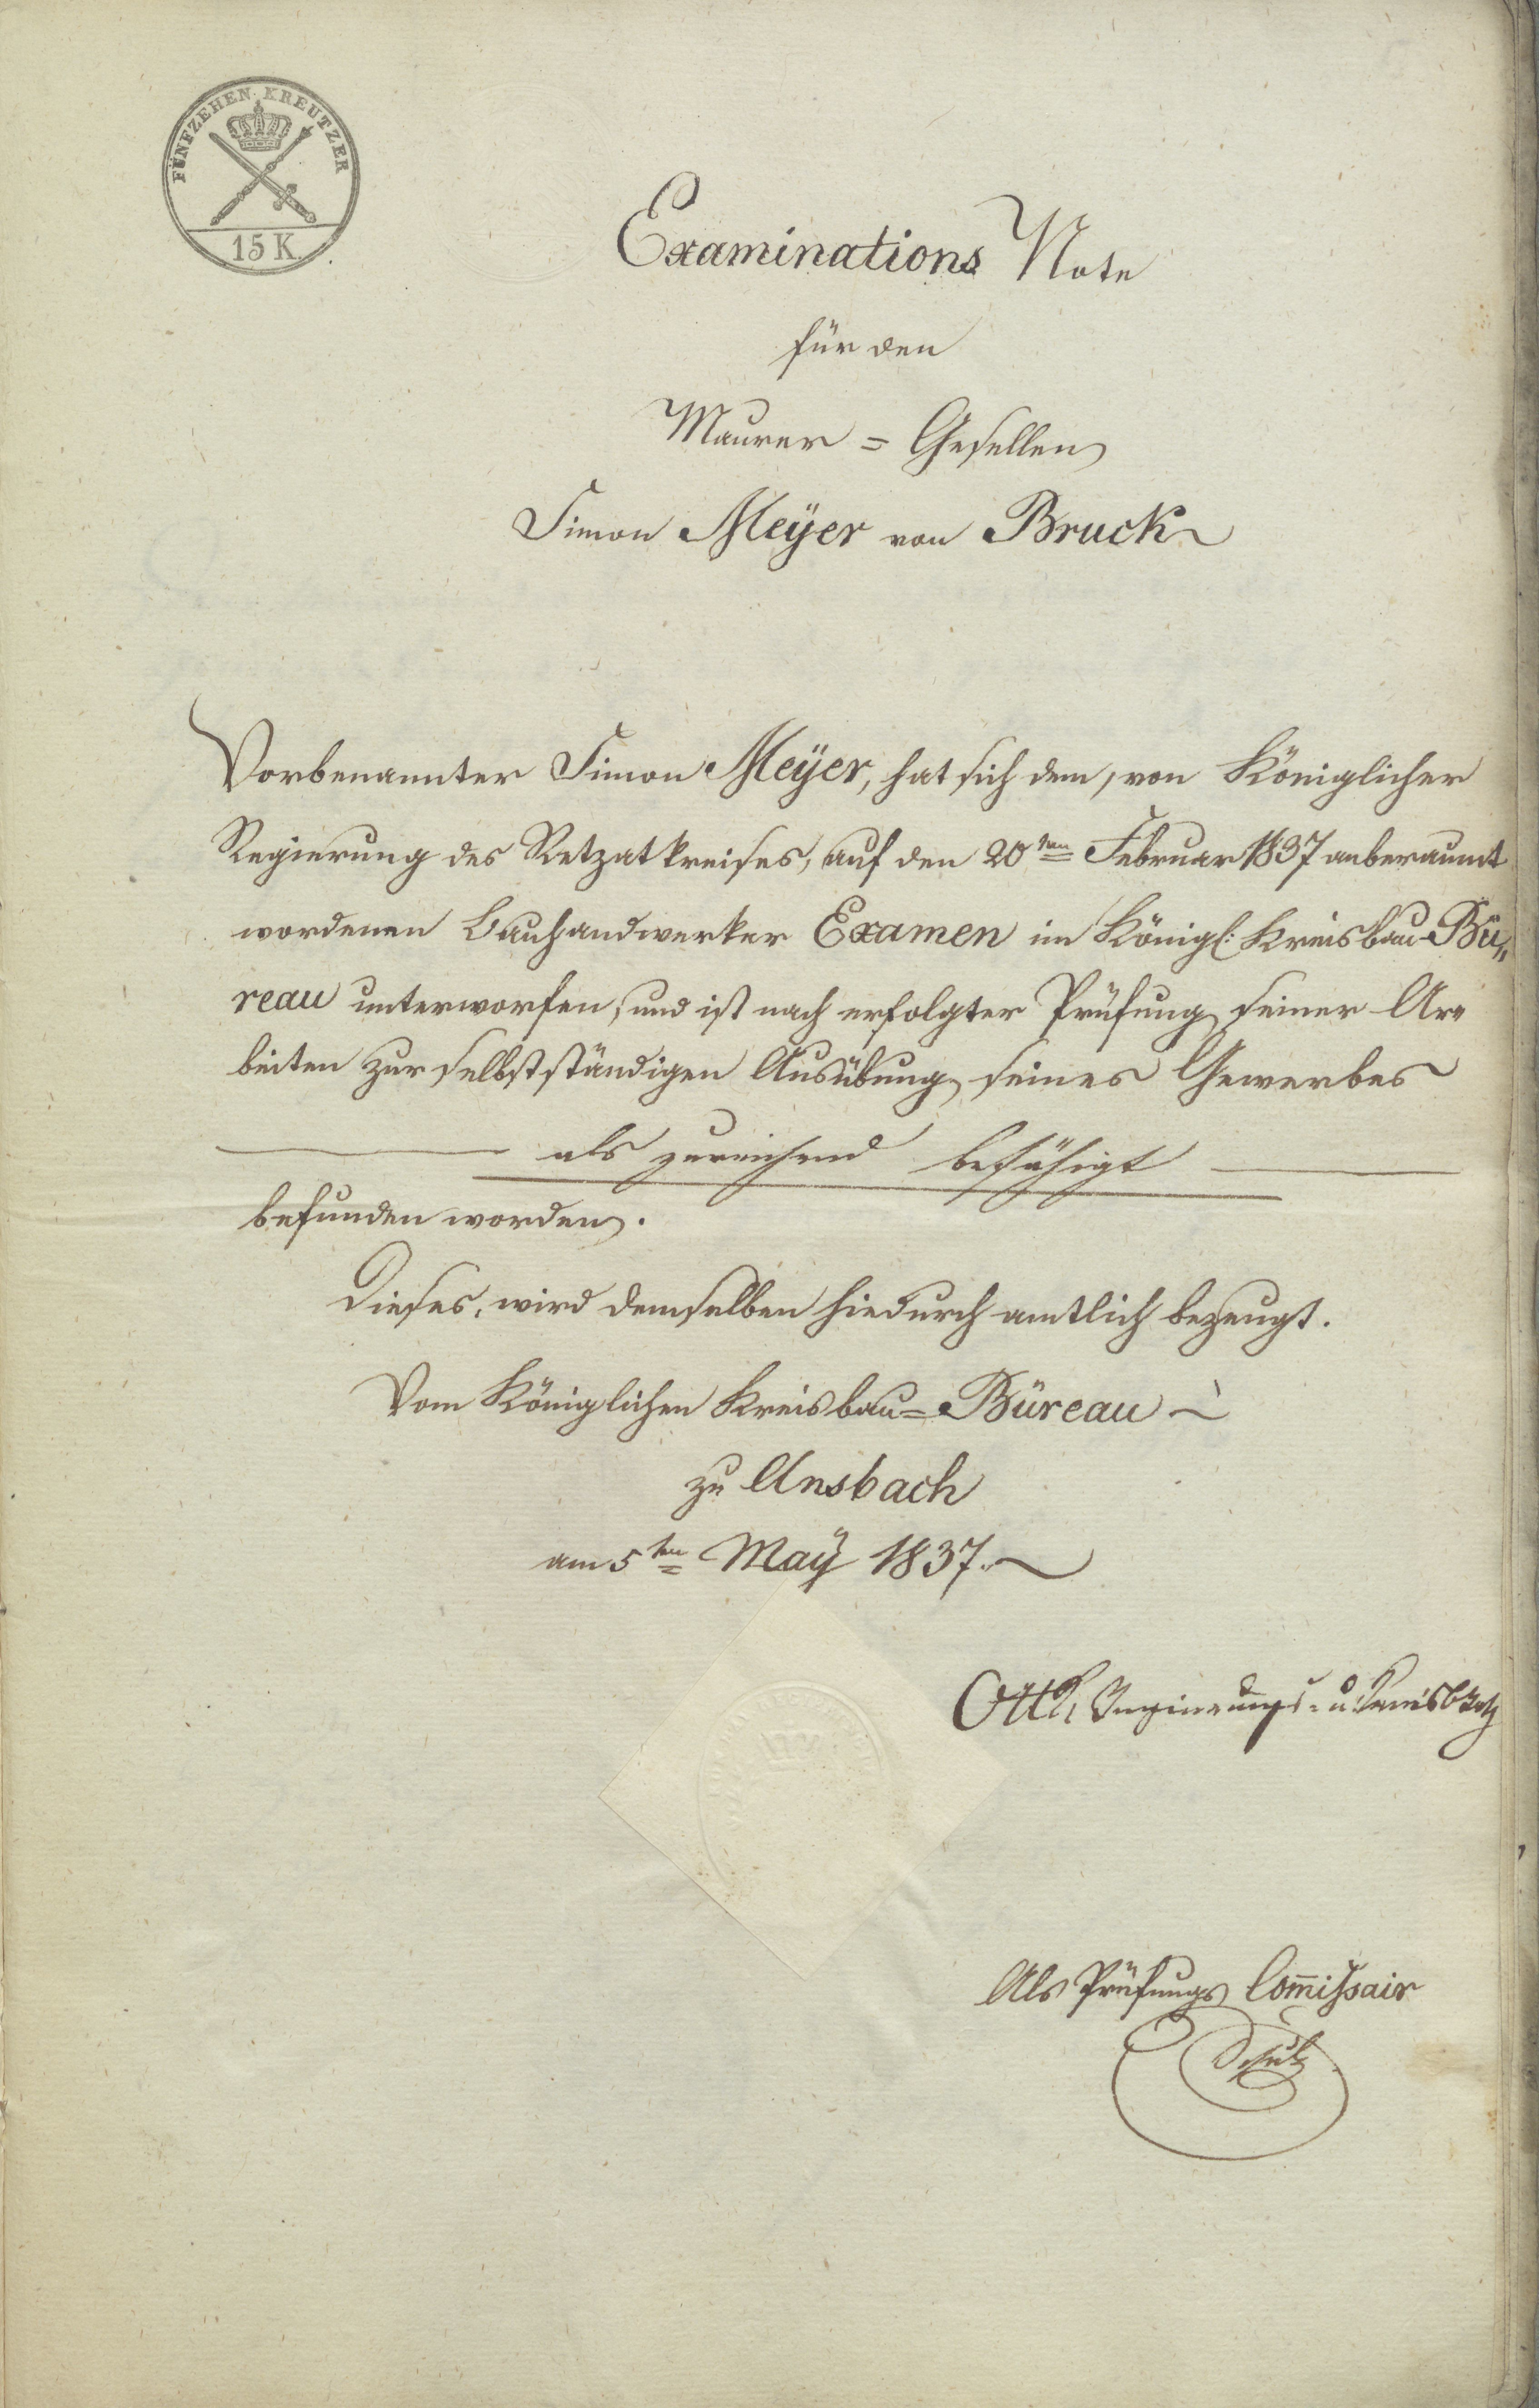 FÜNFZEHEN KREUTZER
15 K.
Examinations Note
für den
Maurer = Gesellen
Simon Meÿer von Bruck
Vorbenannter Simon Meÿer, hat sich dem, von Königlicher
Regierung des Retzatkreises, auf den 20ten Februar 1837 anberaumt
wordenen Bauhandwerker Examen im Königl: Kreisbau-Bü„
reau unterworfen, und ist nach erfolgter Prüfung seiner Ar„
beiten zur selbstständigen Ausübung seines Gewerbes
als zureichend befähigt
befunden worden.
Dieses, wird demselben hiedurch amtlich bezeugt.
Vom Königlichen Kreisbau=Büreau
zu Ansbach
am 5ten Maÿ 1837.
Regierungs- u.
Als Prüfungs Com̅issair
Schulz